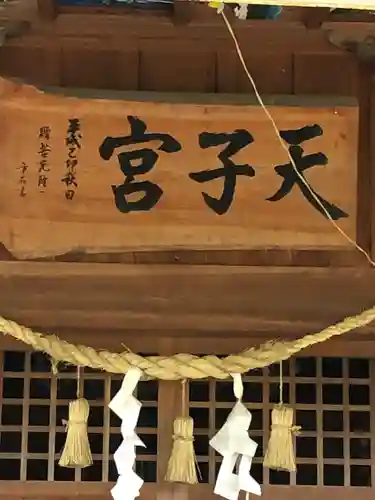 天子宮
平成己卯秋日